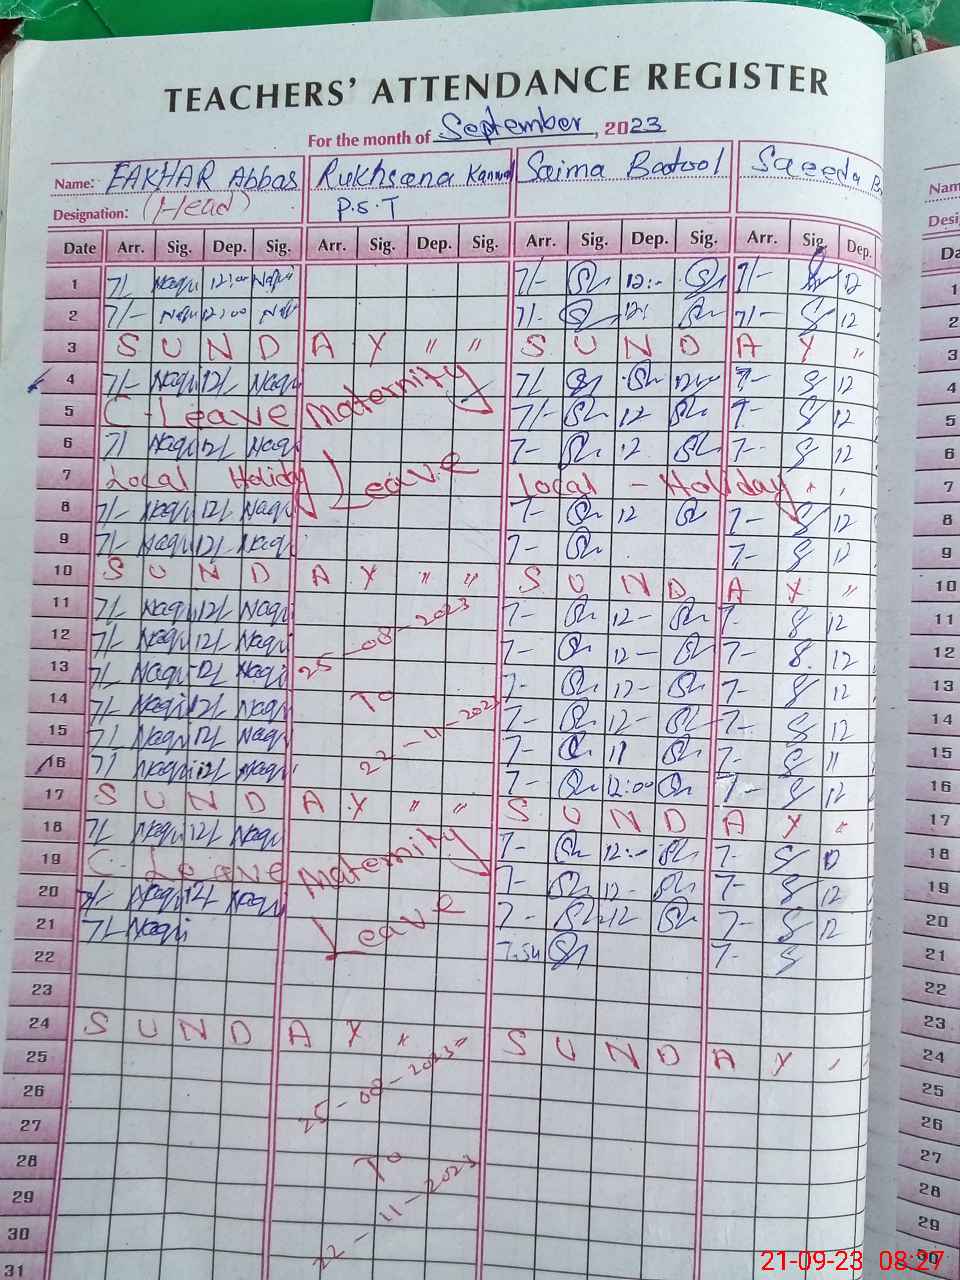 TEACHERS' ATTENDANCE REGISTER
For the month of September, 2023
Name: FAKHAR Abbas Rukhsana Kanwal Saima Batool Saeeda B
Designation: (Head) P.S.T
Date Arr. Sig. Dep. Sig. Arr. Sig. Dep. Sig. Arr. Sig. Dep. Sig. Arr. Sig. Dep.
1 7/- Naqvi 12:00 Naqvi 7/- 12:- 7/- 12
2 7/- Naqvi 12:00 Naqvi 7/- 12: 7/- 12
3 S U N D A Y " " S U N D A Y "
4 7/- Naqvi 12/- Naqvi Maternity 7/- 7- 12
5 C. Leave 7/- 12 7- 12
6 7/ Naqvi 12/- Naqvi Leave 7- 12 7- 12
7 Local Holiday Local - Holiday " "
8 7/- Naqvi 12/- Naqvi 7- 12 7- 12
9 7/- Naqvi 12/- Naqvi 7- 7- 12
10 S U N D A Y " " S U N D A Y "
11 7/- Naqvi 12/- Naqvi 25-08-2023 7- 12- 7- 12
12 7/- Naqvi 12/- Naqvi 7- 12- 7- 12
13 7/- Naqvi 12/- Naqvi To 7- 12- 7- 12
14 7/- Naqvi 12/- Naqvi 22-11-2023 7- 12- 7- 12
15 7/- Naqvi 12/- Naqvi 7- 11 7- 11
16 7/ Naqvi 12/- Naqvi 7- 12:00 7- 12
17 S U N D A Y " " S U N D A Y "
18 7/- Naqvi 12/- Naqvi Maternity 7- 12:- 7-
19 C. Leave 7- 12- 7- 12
20 7/- Naqvi 12/- Naqvi Leave 7- 12 7- 12
21 7/- Naqvi 7-
22
23
24 S U N D A Y " " S U N D A Y "
25 25-08-2023
26
27
28 To
29 22-11-2023
30
31
Nam
Desi
Da
1
2
3
4
5
6
7
8
9
10
11
12
13
14
15
16
17
18
19
20
21
22
23
24
25
26
27
28
29
30
21-09-23 08:27